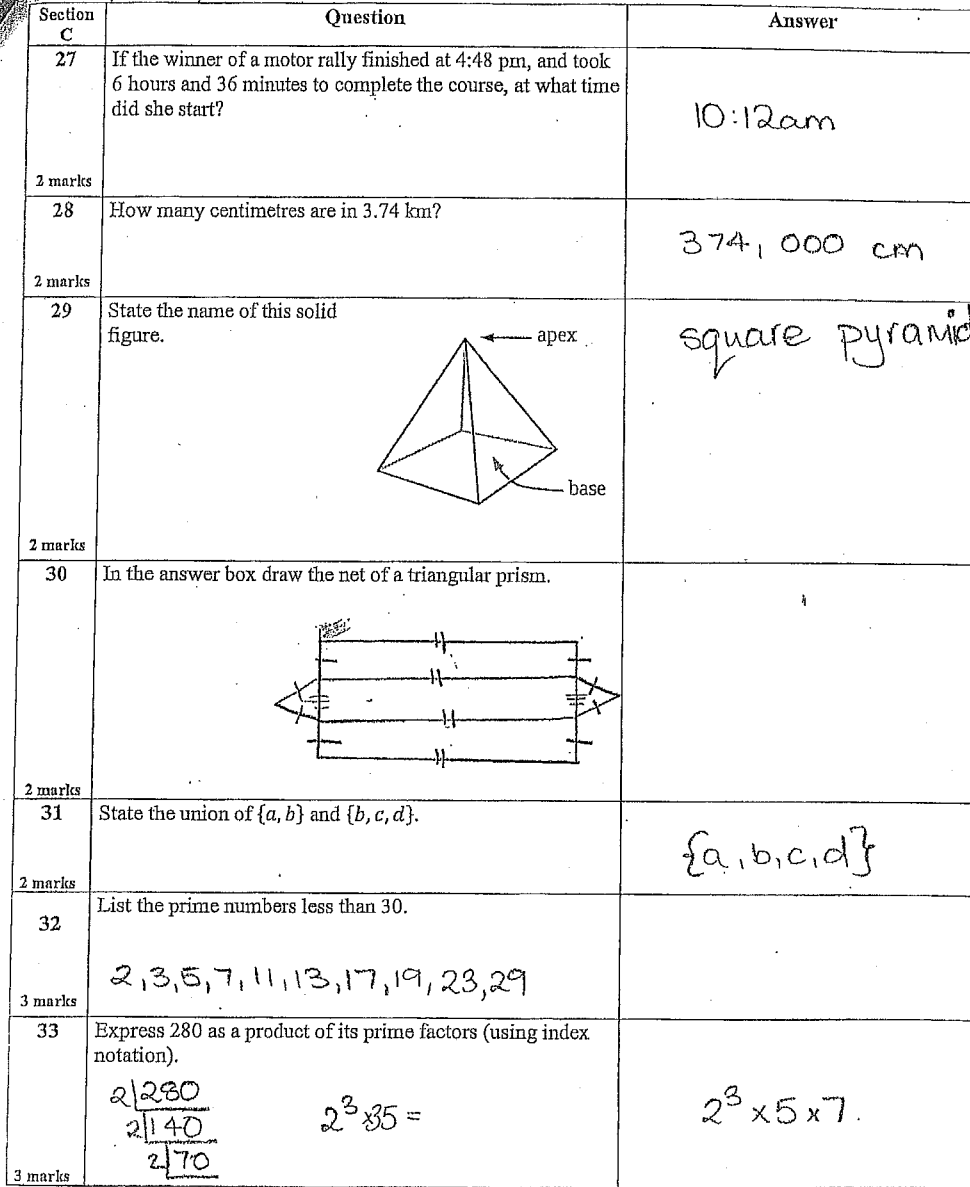 Section C Question Answer
27 If the winner of a motor rally finished at 4:48 pm, and took
6 hours and 36 minutes to complete the course, at what time
did she start?
10:12am
2 marks
28 How many centimetres are in 3.74 km?
374,000 cm
2 marks
29 State the name of this solid
figure.
apex
square pyramid
base
2 marks
30 In the answer box draw the net of a triangular prism.
2 marks
31 State the union of {a, b} and {b, c, d}.
{a,b,c,d}
2 marks
32 List the prime numbers less than 30.
2,3,5,7,11,13,17,19,23,29
3 marks
33 Express 280 as a product of its prime factors (using index
notation).
2|280
2|140
2|70
2³×35 =
2³×5×7.
3 marks